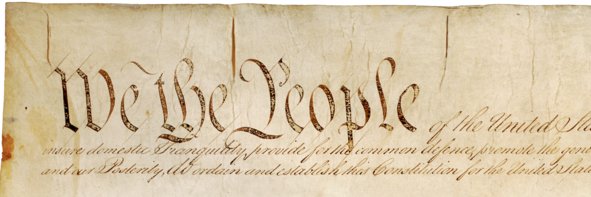 We the People of the United Sta
insure domestic Tranquility, provide for the common defence, promote the gene
and our Posterity, do ordain and establish this Constitution for the United State